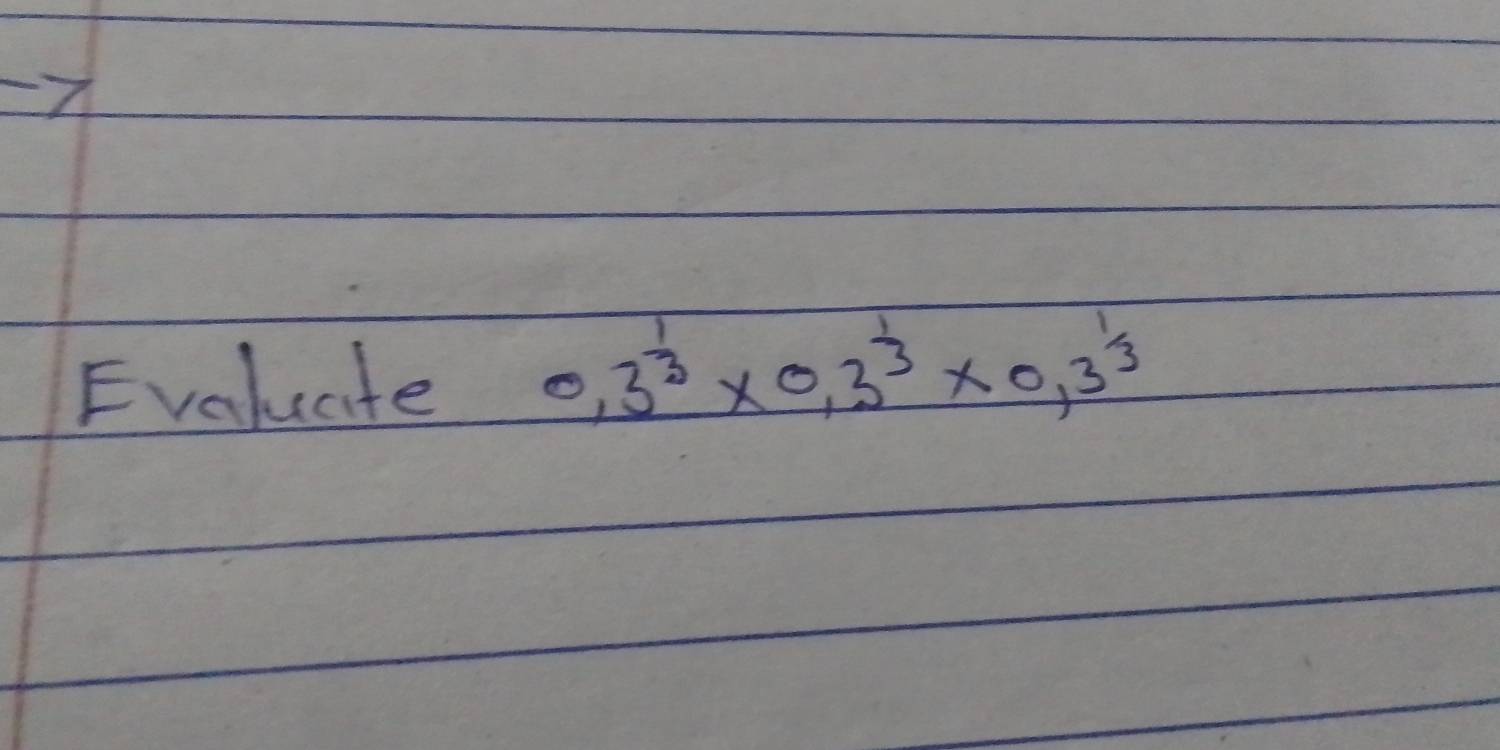 ->
Evaluate 0,3^1/3 x 0,3^1/3 x 0,3^1/3